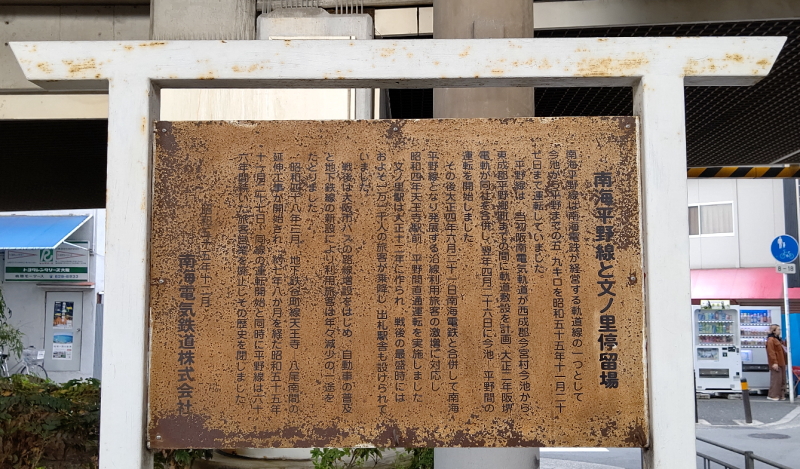 南海平野線と文ノ里停留場
南海平野線は南海電鉄が経営する軌道線の一つとして
今池から平野までの五・九キロを昭和五十五年十一月二十
七日まで運転していました
平野線は 当初阪堺電気軌道が西成郡今宮村今池から
東成郡平野郷町までの間に軌道敷設を計画 大正二年阪堺
電軌が同社を合併し 翌年四月二十六日に今池 平野間の
運転を開始しました
その後大正四年六月二十一日南海電鉄と合併して南海
平野線となり 発展する沿線利用旅客の激増に対応し
昭和四年天王寺駅前 平野間直通運転を実施しました
文ノ里駅は大正十二年に作られ 戦後の最盛時には
およそ一万二千人の旅客が乗降し 出札駅舎も設けられて
いました
戦後は大阪市バスの路線増強をはじめ 自動車の普及
と地下鉄線の新設により利用旅客は年々減少の一途を
たどりました
昭和四十八年三月 地下鉄谷町線天王寺 八尾南間の
延伸工事が開始され 約七年八か月を経た昭和五十五年
十一月二十七日 同線の運転開始と同時に平野線は六十
六年間続いた旅客輸送を廃止しその歴史を閉じました
昭和五十五年十二月
南海電気鉄道株式会社